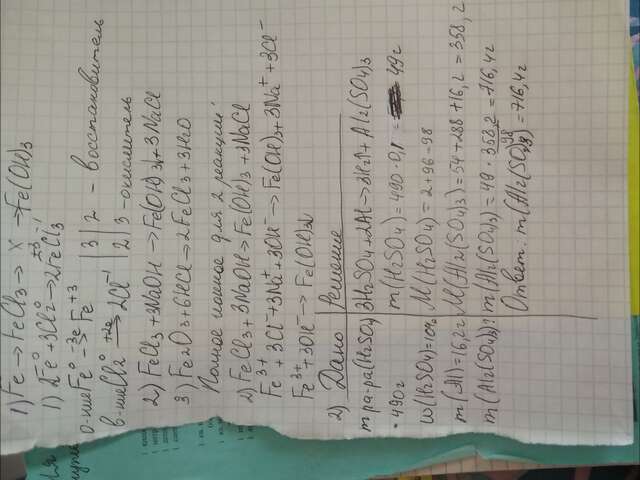 1) Fe → FeCl3 → X → Fe(OH)3
1) 2Fe⁰ + 3Cl2⁰ → 2FeCl3
+3 -1
о-ние Fe⁰ -3e → Fe⁺³ | 3 | 2 - восстановитель
в-ние Cl2⁰ +2e → 2Cl⁻¹ | 2 | 3 - окислитель
2) FeCl3 + 3NaOH → Fe(OH)3 + 3NaCl
3) Fe2O3 + 6HCl → 2FeCl3 + 3H2O
Полное ионное для 2 реакции
2) FeCl3 + 3NaOH → Fe(OH)3 + 3NaCl
Fe³⁺ + 3Cl⁻ + 3Na⁺ + 3OH⁻ → Fe(OH)3 + 3Na⁺ + 3Cl⁻
Fe³⁺ + 3OH⁻ → Fe(OH)3
2) Дано Решение
m р-ра(H2SO4) 3H2SO4 + 2Al → 3H2↑ + Al2(SO4)3
490г m(H2SO4) = 490·0,1 = 49г
ω(H2SO4)=10% M(H2SO4) = 2+96=98
m(Al)=16,2г M(Al2(SO4)3) = 54+288+16,2 = 358,2
m(Al2(SO4)3)? m(Al2(SO4)3) = 49·358,2 = 716,4г
98
Ответ: m(Al2(SO4)3) = 716,4г